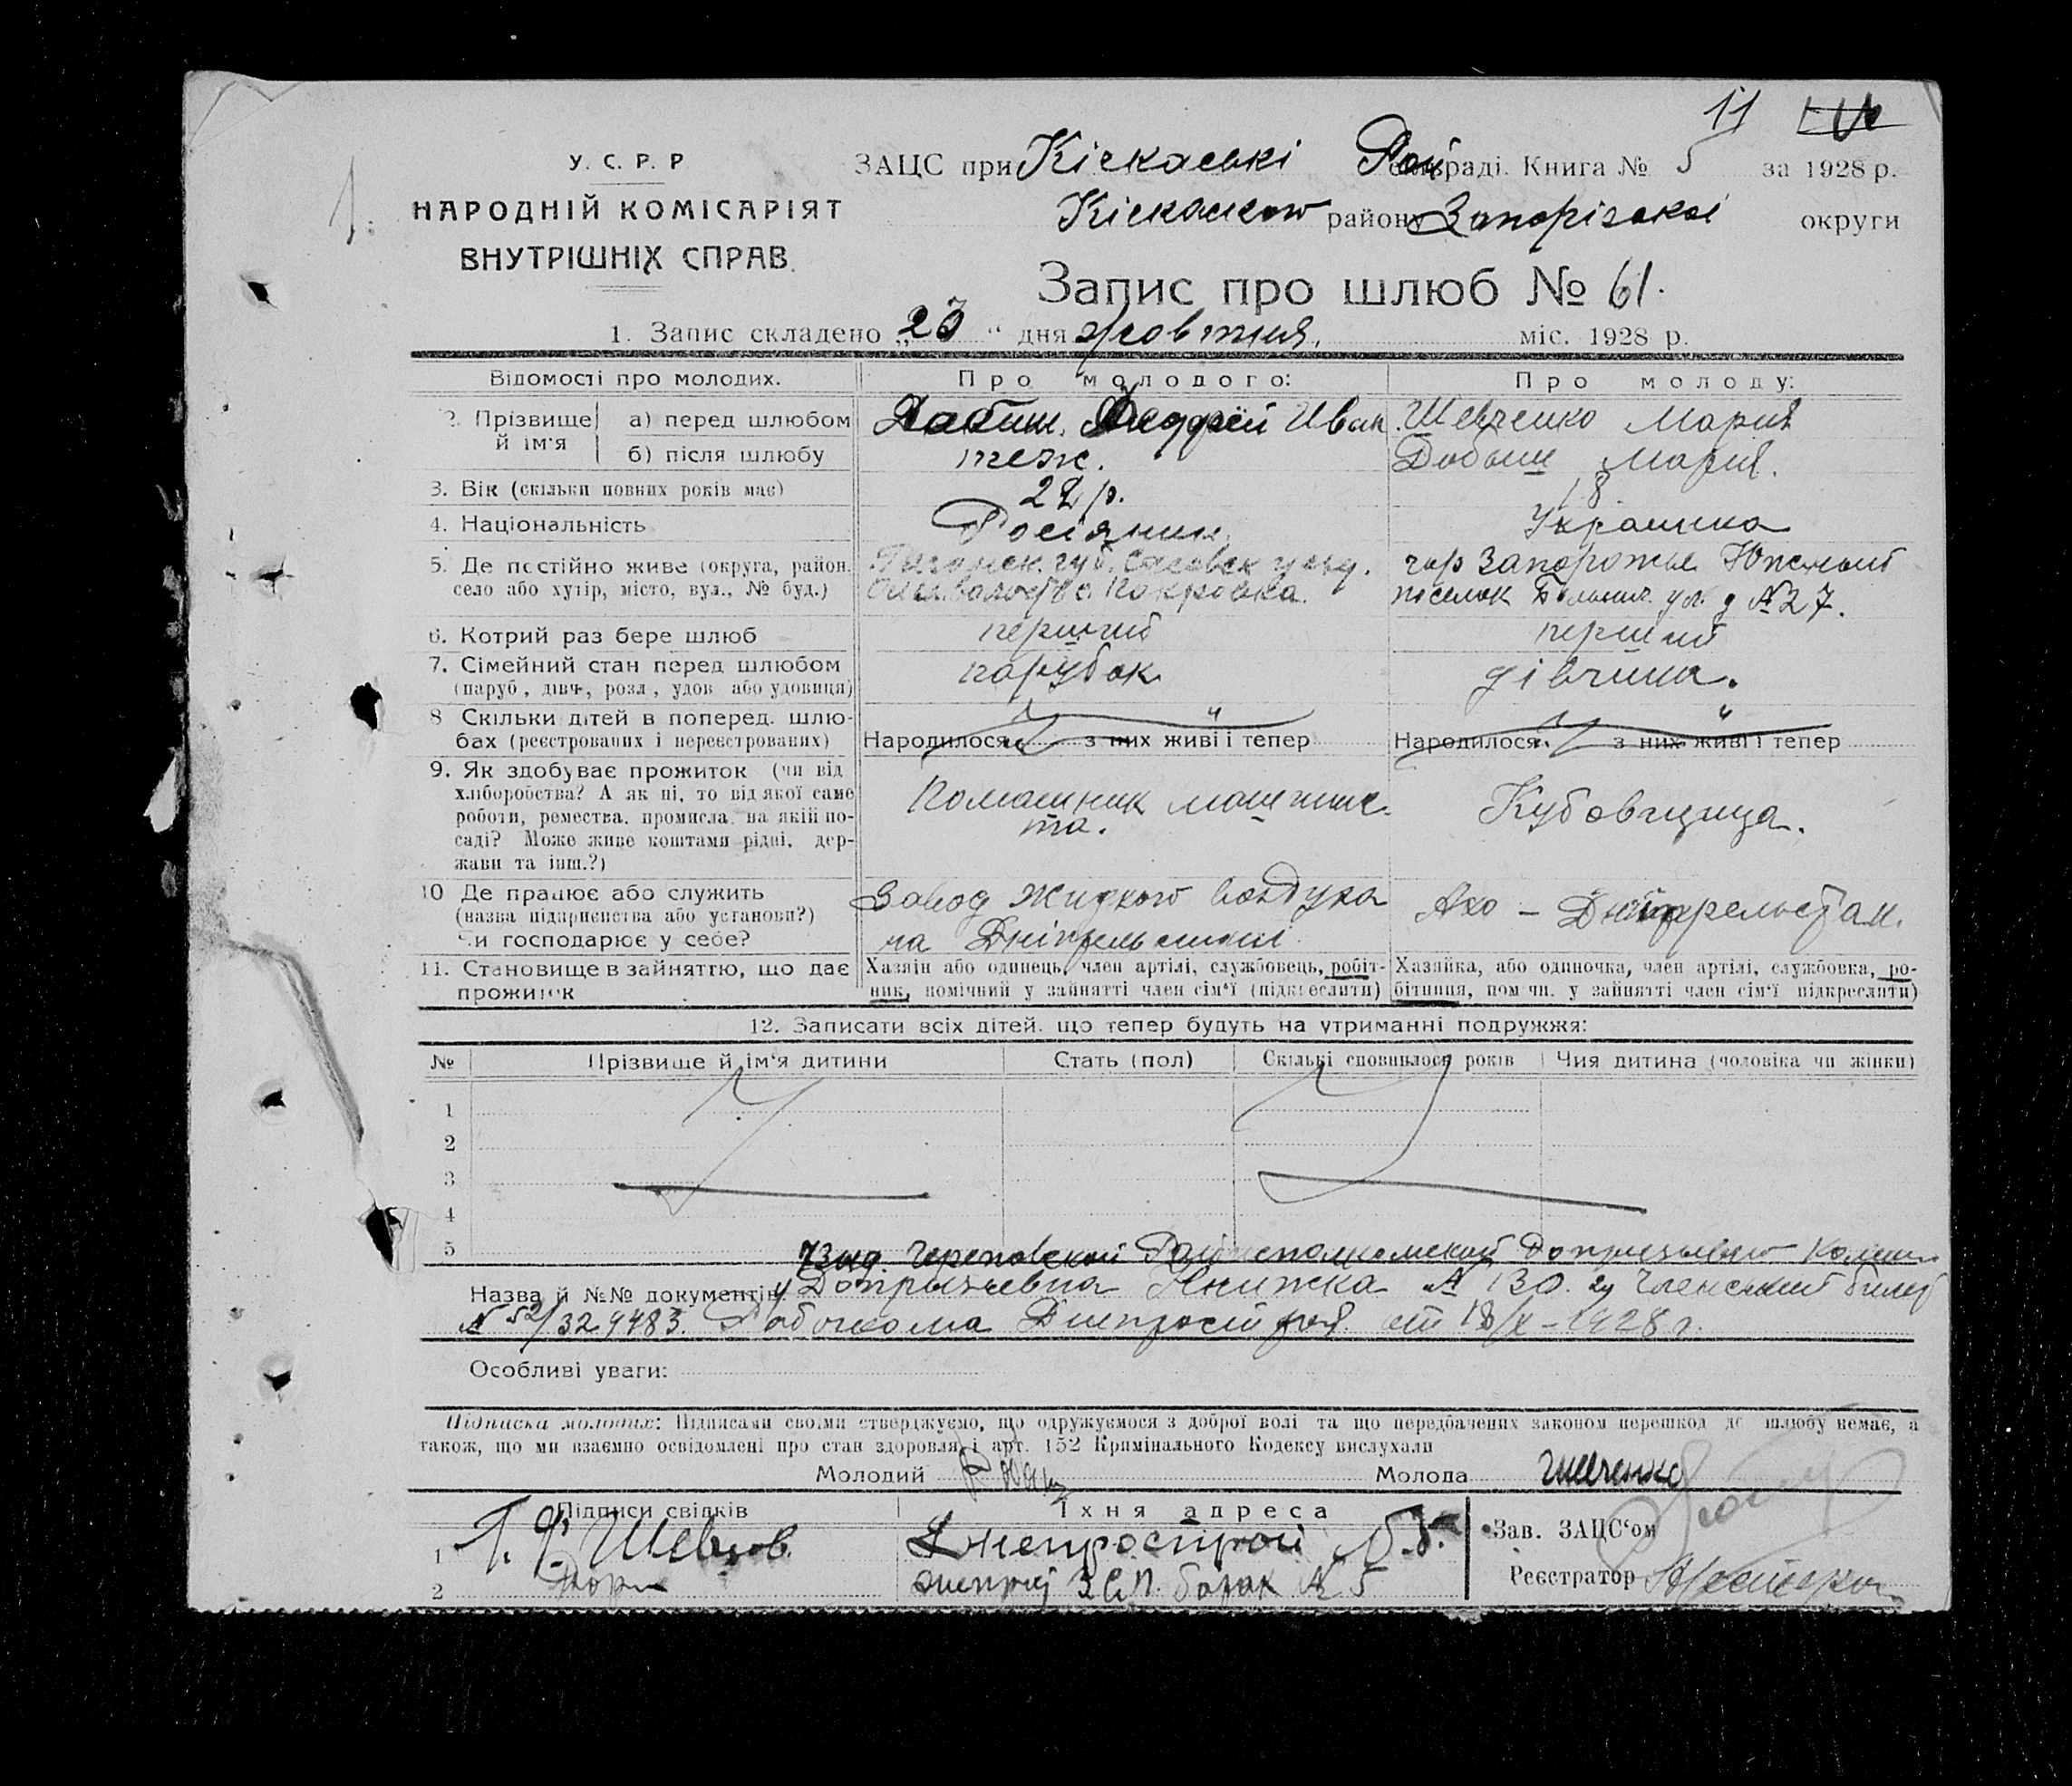 11
У. С. Р. Р
ЗАЦС при Кічкаські Рай сільраді. Книга № 5 за 1928 р.
1.
НАРОДНІЙ КОМІСАРІЯТ
району Запорізької округи
ВНУТРІШНІХ СПРАВ.
Запис про шлюб № 61.
1. Запис складено „ “ дня жовтня, міс. 1928 р.
Відомості про молодих. Про молодого: Про молоду:
2. Прізвище й ім'я а) перед шлюбом Иван. Шевченко Мария
б) після шлюбу теж. Мария.
3. Вік (скільки повних років має) р. 18
4. Національність Росіянин. Українка
5. Де постійно живе (округа, район, губ. уезд. гор Запорожье Южный
село або хутір, місто, вул., № буд.) Покровка. поселок ул. д №27.
6. Котрий раз бере шлюб перший перший
7. Сімейний стан перед шлюбом парубок дівчина.
(паруб, дівч, розл, удов або удовиця)
8 Скільки дітей в поперед. шлю-
бах (реєстрованих і нереєстрованих) Народилося з них живі і тепер Народилося з них живі і тепер
9. Як здобуває прожиток (чи від
хліборобства? А як ні, то від якої саме Помашник машинис- Кубовщица.
роботи, ремества, промисла на якій по- та.
саді? Може живе коштами рідні, дер-
жави та інш.?)
10 Де працює або служить Завод Жидкого воздуха
(назва підприємства або установи?) Ахо –
Чи господарює у себе? на Дніпрельстані
11. Становище в зайняттю, що дає Хазяїн або одинець, член артілі, службовець, робіт- Хазяйка, або одиночка, член артілі, службовка, ро-
прожиток ник, помічний у зайнятті член сім'ї (підкреслити) бітниця, пом чн. у зайнятті член сім'ї підкреслити)
12. Записати всіх дітей, що тепер будуть на утриманні подружжя:
№ Прізвище й ім'я дитини Стать (пол) Скількі сповнилося років Чия дитина (чоловіка чи жінки)
1
2
3
4
5
Назва й №№ документів: Книжка № 130. Членський билет
№ 52/329483. Рабочкома Днепростроя от /X – 1928 г.
Особливі уваги:
Підписка молодих: Підписами своїми стверджуємо, що одружуємося з доброї волі та що передбачених законом перешкод до шлюбу немає, а
також, що ми взаємно освідомлені про стан здоровля, і арт. 152 Кримінального Кодексу вислухали
Молодий Молода Шевченко
Підписи свідків Їхня адреса
1 Шевцов. Днепрострой Зав. ЗАЦС'ом
2 барак № 5 Реєстратор